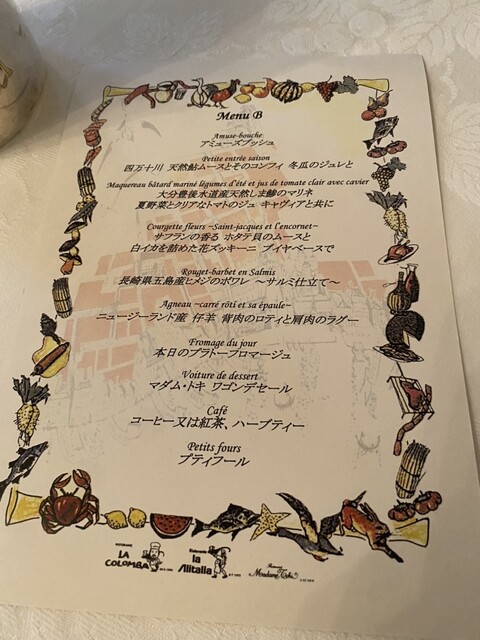 Menu B
Amuse-bouche
アミューズブッシュ
Petite entrée saison
四万十川 天然鮎ムースとそのコンフィ 冬瓜のジュレと
Maquereau bâtard mariné légumes d'été et jus de tomate clair avec cavier
大分豊後水道産天然しま鯵のマリネ
夏野菜とクリアなトマトのジュ キャヴィアと共に
Courgette fleurs ~Saint-jacques et l'encornet~
サフランの香る ホタテ貝のムースと
白イカを詰めた花ズッキーニ ブイヤベースで
Rouget-barbet en Salmis
長崎県五島産ヒメジのポワレ ～サルミ仕立て～
Agneau ~carré rôti et sa épaule~
ニュージーランド産 仔羊 背肉のロティと肩肉のラグー
Fromage du jour
本日のプラトーフロマージュ
Voiture de dessert
マダム・トキ ワゴンデセール
Café
コーヒー又は紅茶、ハーブティー
Petits fours
プティフール
RISTORANTE
LA COLOMBA
Ristorante
la Alitalia
Madame Toki